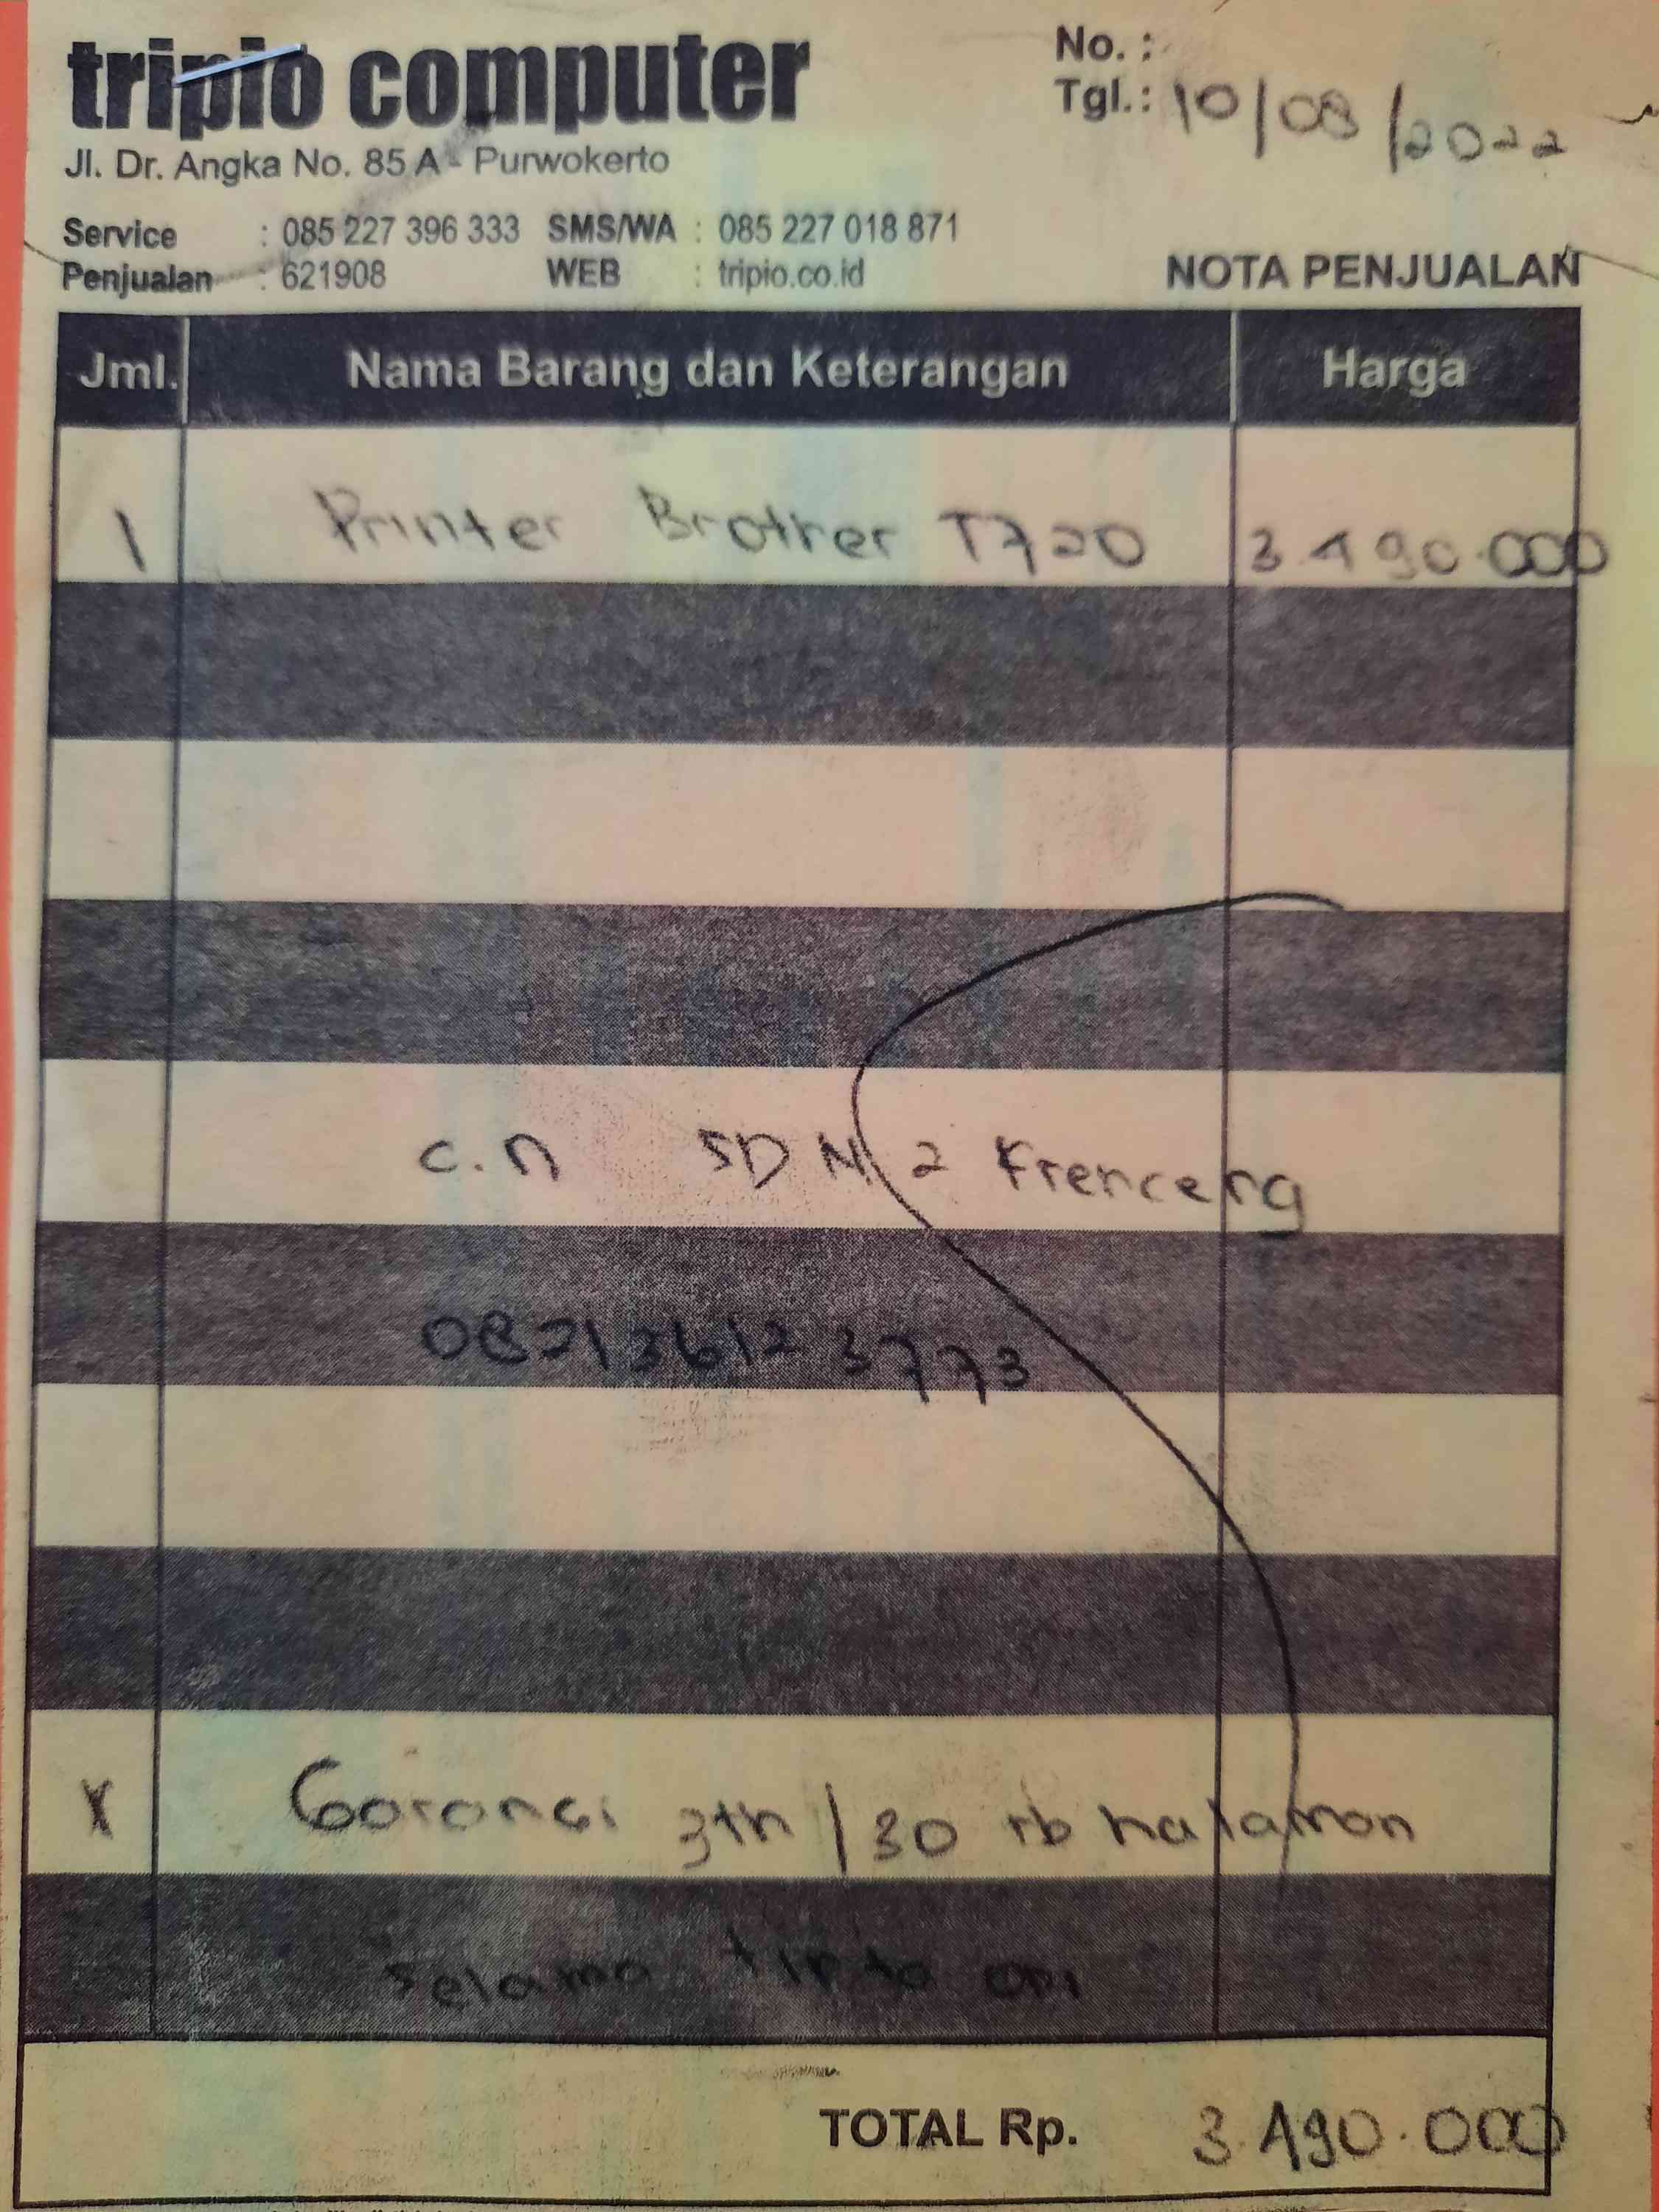 tripio computer
Jl. Dr. Angka No. 85 A - Purwokerto
No. :
Tgl.: 10/08/2022
Service : 085 227 396 333 SMS/WA : 085 227 018 871
Penjualan : 621908 WEB : tripio.co.id
NOTA PENJUALAN
Jml. Nama Barang dan Keterangan Harga
1 Printer Brother T720 3.490.000
c.n SDN 2 Krenceng
082136123773
X Garansi 3th / 30 rb halaman
selama tinta ori
TOTAL Rp. 3.490.000